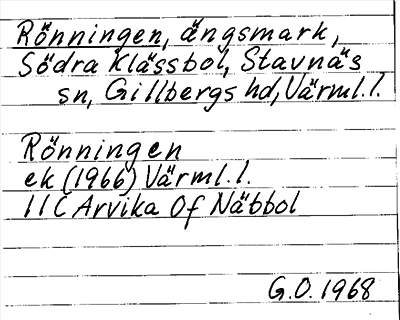 Rönningen, ängsmark,
Södra Klässbol, Stavnäs
sn, Gillbergs hd, Värml. l.
Rönningen
ek (1966) Värml. l.
11C Arvika Of Näbbol
G.O. 1968